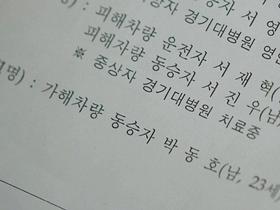 상자 경기대병원 영안
: 피해차량 운전자 서 재 혁(
피해차량 동승자 서 진 우(남
※ 중상자 경기대병원 치료중
명) : 가해차량 동승자 박 동 호(남, 23세)